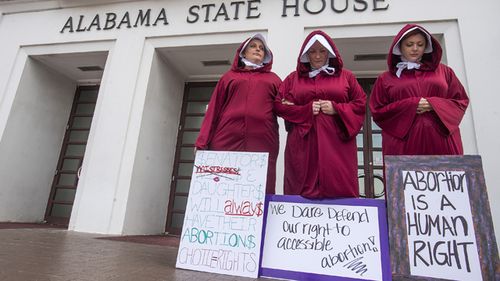 ALABAMA STATE HOUSE
SENATOR$
MISTRESSES
DAUGHTER$
WILL alwAY$
HAVE THEIR
ABORTION$
CHOICE RIGHTS
We Dare Defend
our right to
accessible
abortion!!
ABORTION
IS A
HUMAN
RIGHT